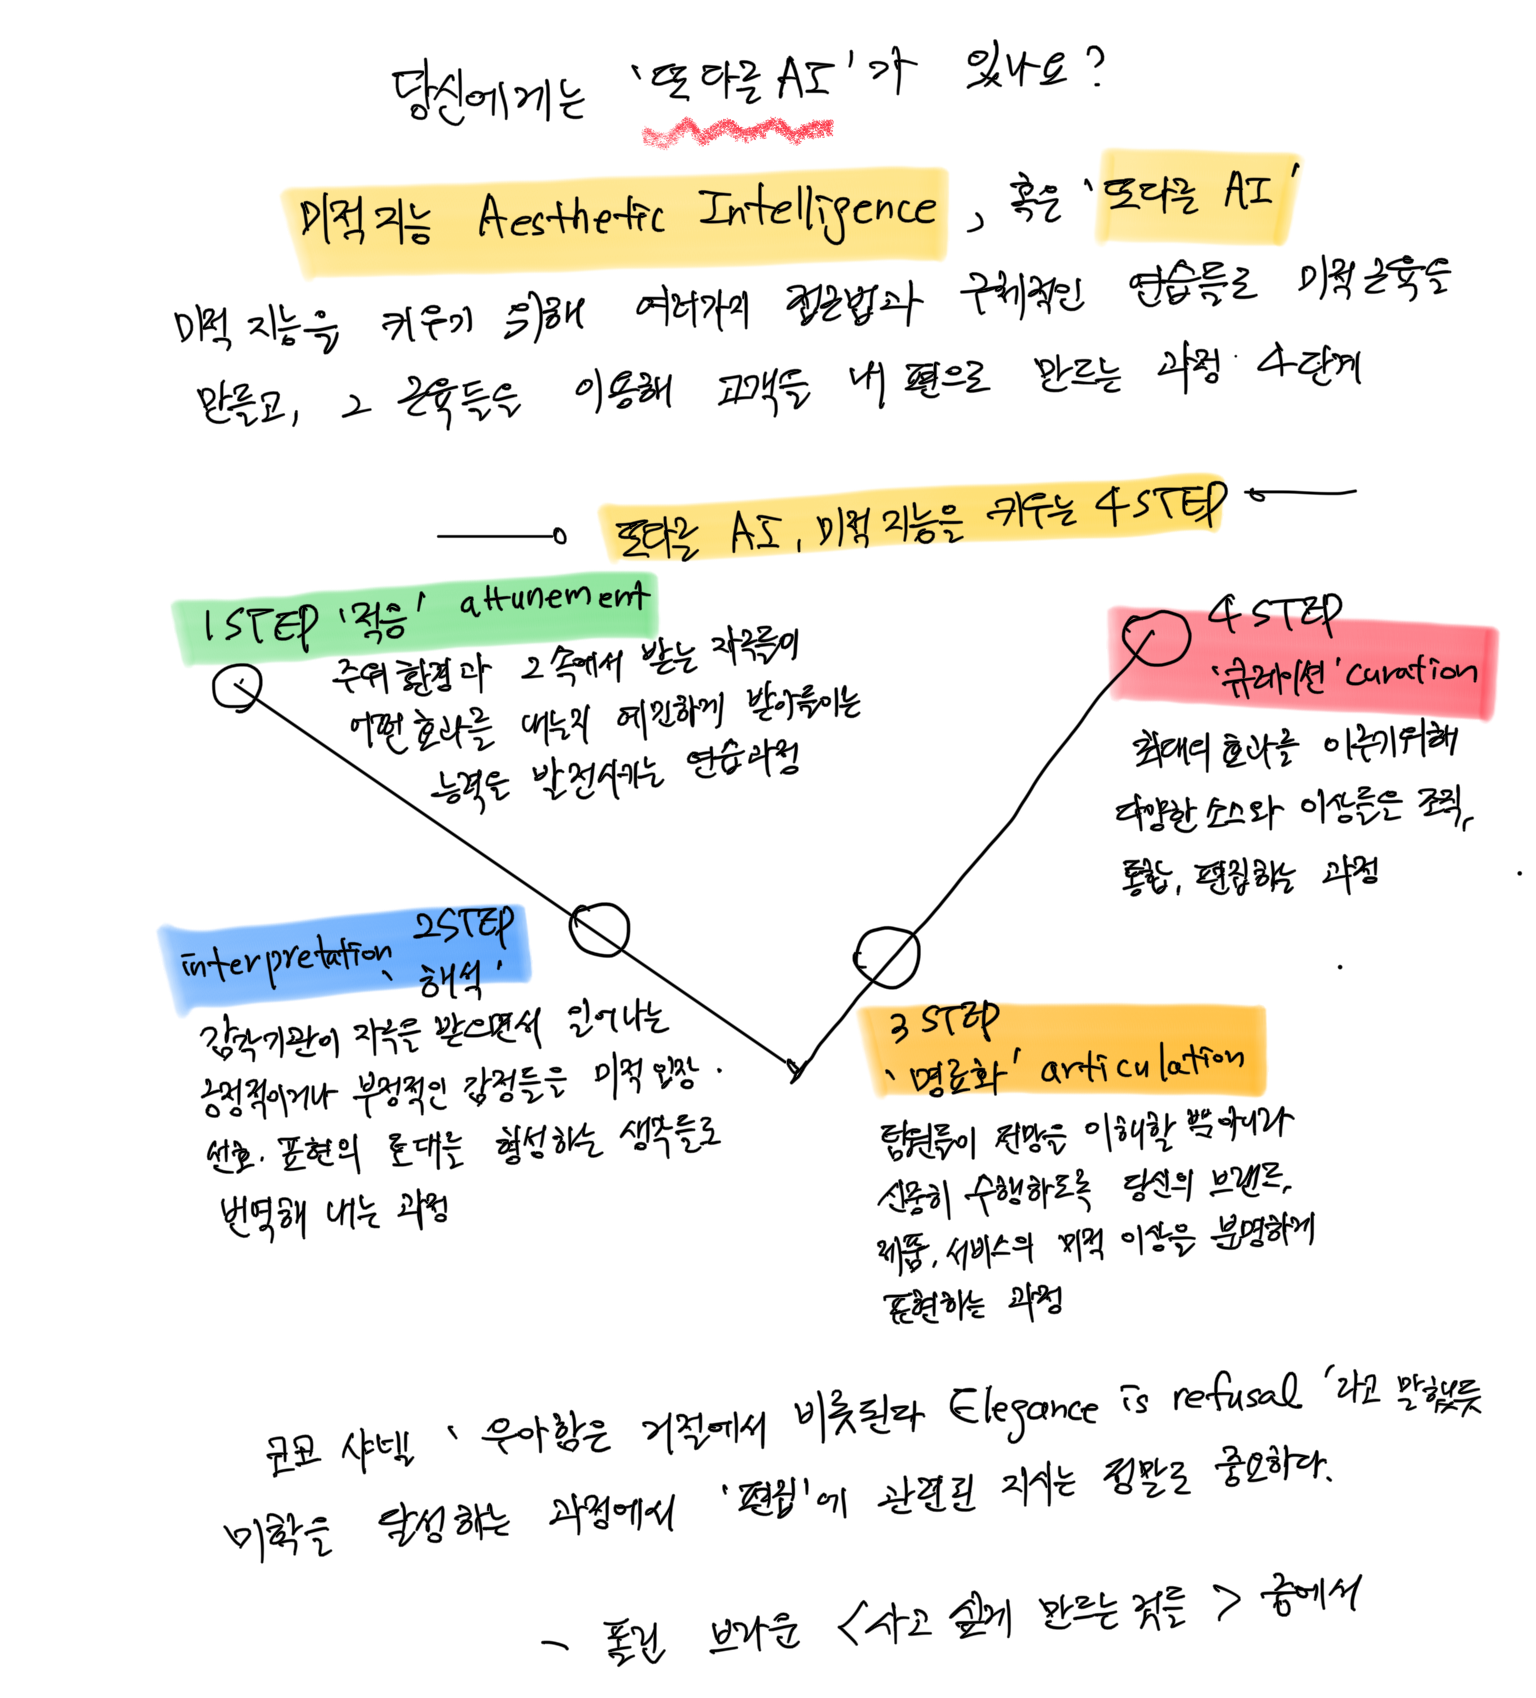 당신에게는 '또다른 AI'가 있나요?
미적지능 Aesthetic Intelligence, 혹은 '또다른 AI'
미적 지능을 키우기 위해 여러가지 접근법과 구체적인 연습들로 미적근육을
만들고, 그 근육들을 이용해 고객을 내 편으로 만드는 과정 4단계
또다른 AI, 미적지능을 키우는 4STEP
1STEP '적응' attunement
주위환경과 그 속에서 받는 자극들이
어떤효과를 내는지 예민하게 받아들이는
능력을 발전시키는 연습과정
2STEP
interpretation '해석'
감각기관이 자극을 받으면서 일어나는
긍정적이거나 부정적인 감정들을 미적 입장·
선호·표현의 토대를 형성하는 생각들로
번역해 내는 과정
3 STEP
'명료화' articulation
팀원들이 전망을 이해할 뿐아니라
신중히 수행하도록 당신의 브랜드,
제품, 서비스의 미적 이상을 분명하게
표현하는 과정
4 STEP
'큐레이션' curation
최대의 효과를 이루기위해
다양한 소스와 이상들은 조직,
통합, 편집하는 과정
코코 샤넬 '우아함은 거절에서 비롯된다 Elegance is refusal '라고 말했듯
미학을 달성하는 과정에서 '편집'에 관련된 지시는 정말로 중요하다.
- 폴린 브라운 <사고 싶게 만드는 것들> 중에서